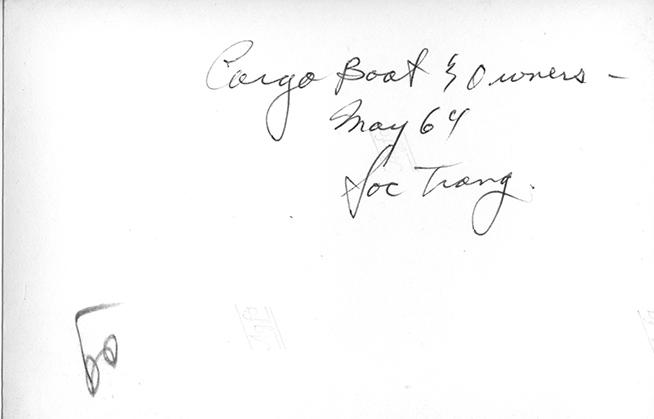 Cargo Boat & Owners -
May 64
Soc Trang.